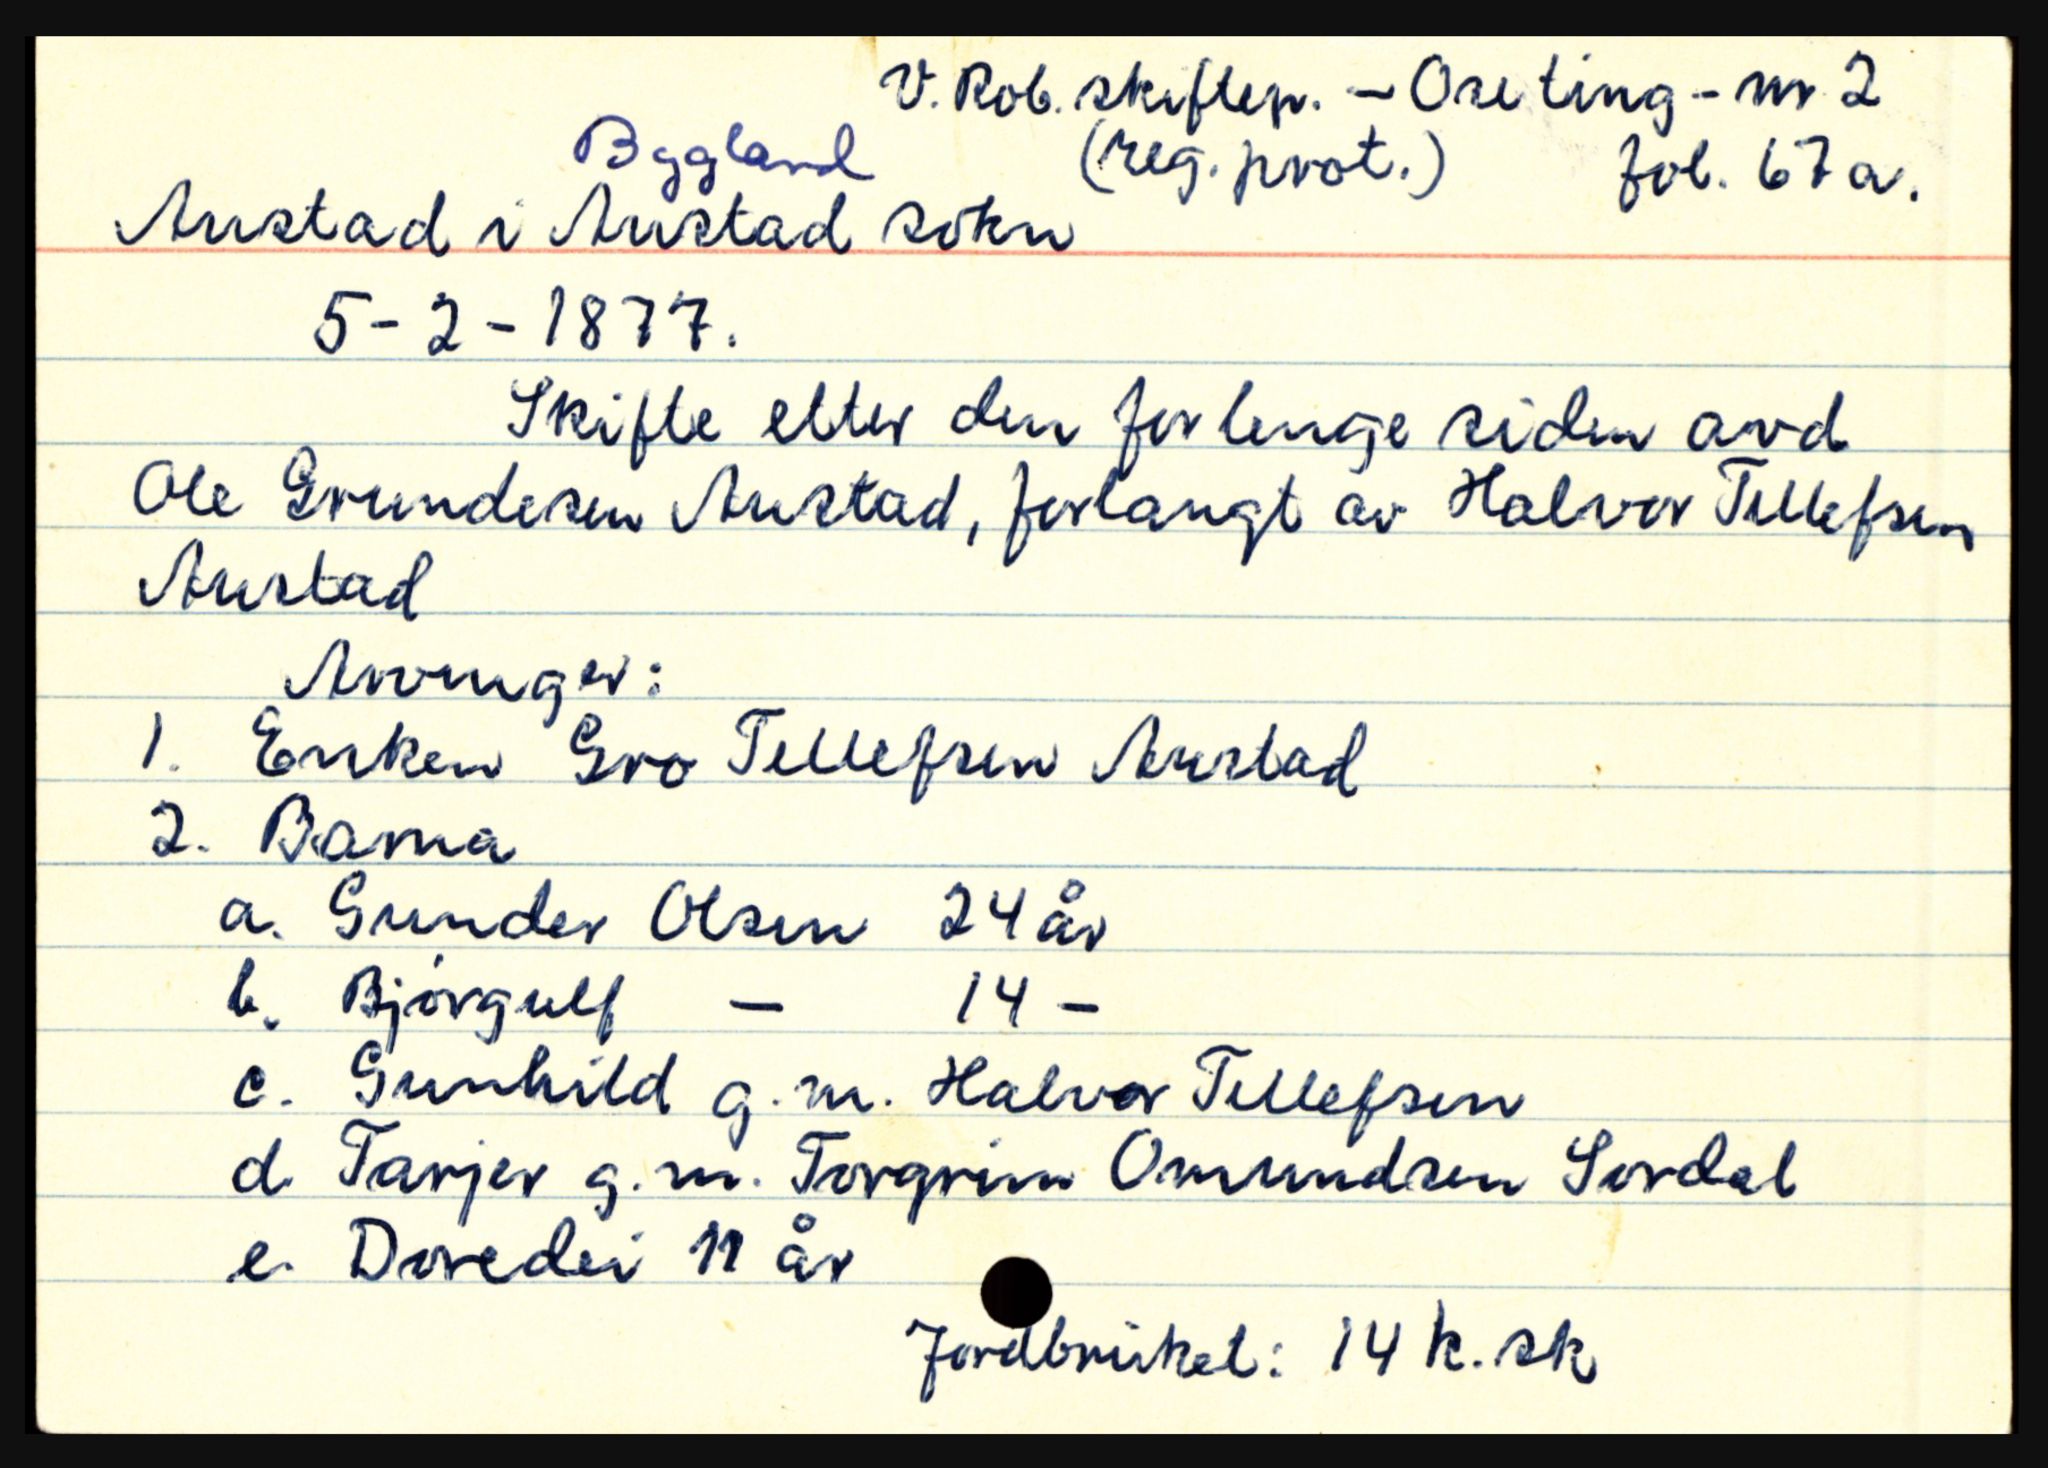 V. Rob. skiftep. - Ose ting - nr 2
Byggland (reg. prot.) fol. 67a.
Austad i Austad sokn
5-2-1877.
Skifte etter den for lenge siden avd
Ole Grundesen Austad, forlangt av Halvor Tellefsen
Austad
Arvinger:
1. Enken Gro Tellefsen Austad
2. Barna
a. Gunder Olsen 24 år
b. Bjørgulf - 14 -
c. Gunhild g.m. Halvor Tellefsen
d. Tarjer g.m. Torgrim Omundsen Sordal
e. Doredei 11 år
Jordbruket: 14 k. sk